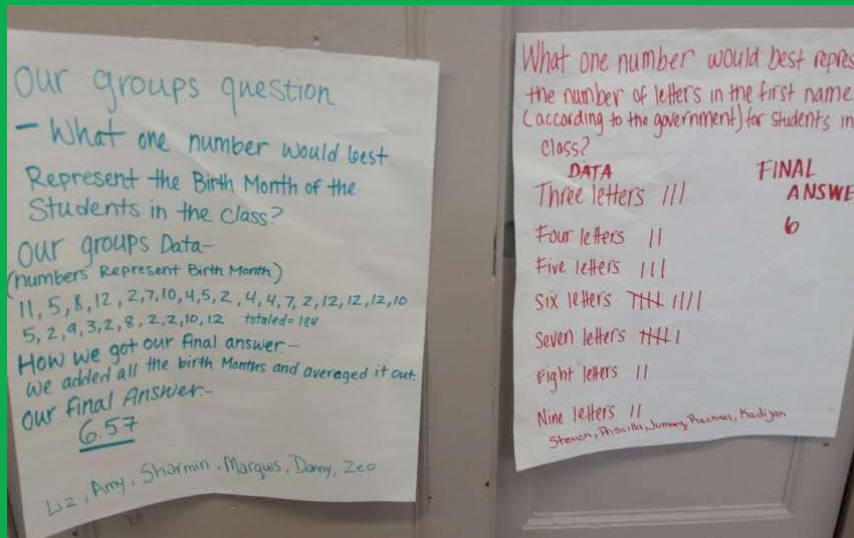 Our groups question
- What one number would best
Represent the Birth Month of the
Students in the Class?
Our groups Data-
(numbers Represent Birth Month)
11, 5, 8, 12, 2, 7, 10, 4, 5, 2, 4, 4, 7, 2, 12, 12, 12, 10
5, 2, 9, 3, 2, 8, 2, 2, 10, 12 totaled = 184
How we got our final answer.-
we added all the birth Months and averaged it out.
Our final Answer.-
6.57
Liz, Amy, Sharmin, Marquis, Danny, Zeo
What one number would best repres
the number of letters in the first name
(according to the government) for students in
class?
DATA
Three letters |||
Four letters ||
Five letters |||
Six letters 卌 ||||
Seven letters 卌 |
Eight letters ||
Nine letters ||
Steven, Priscilla, Rachael, Kadijah
FINAL
ANSWE
6